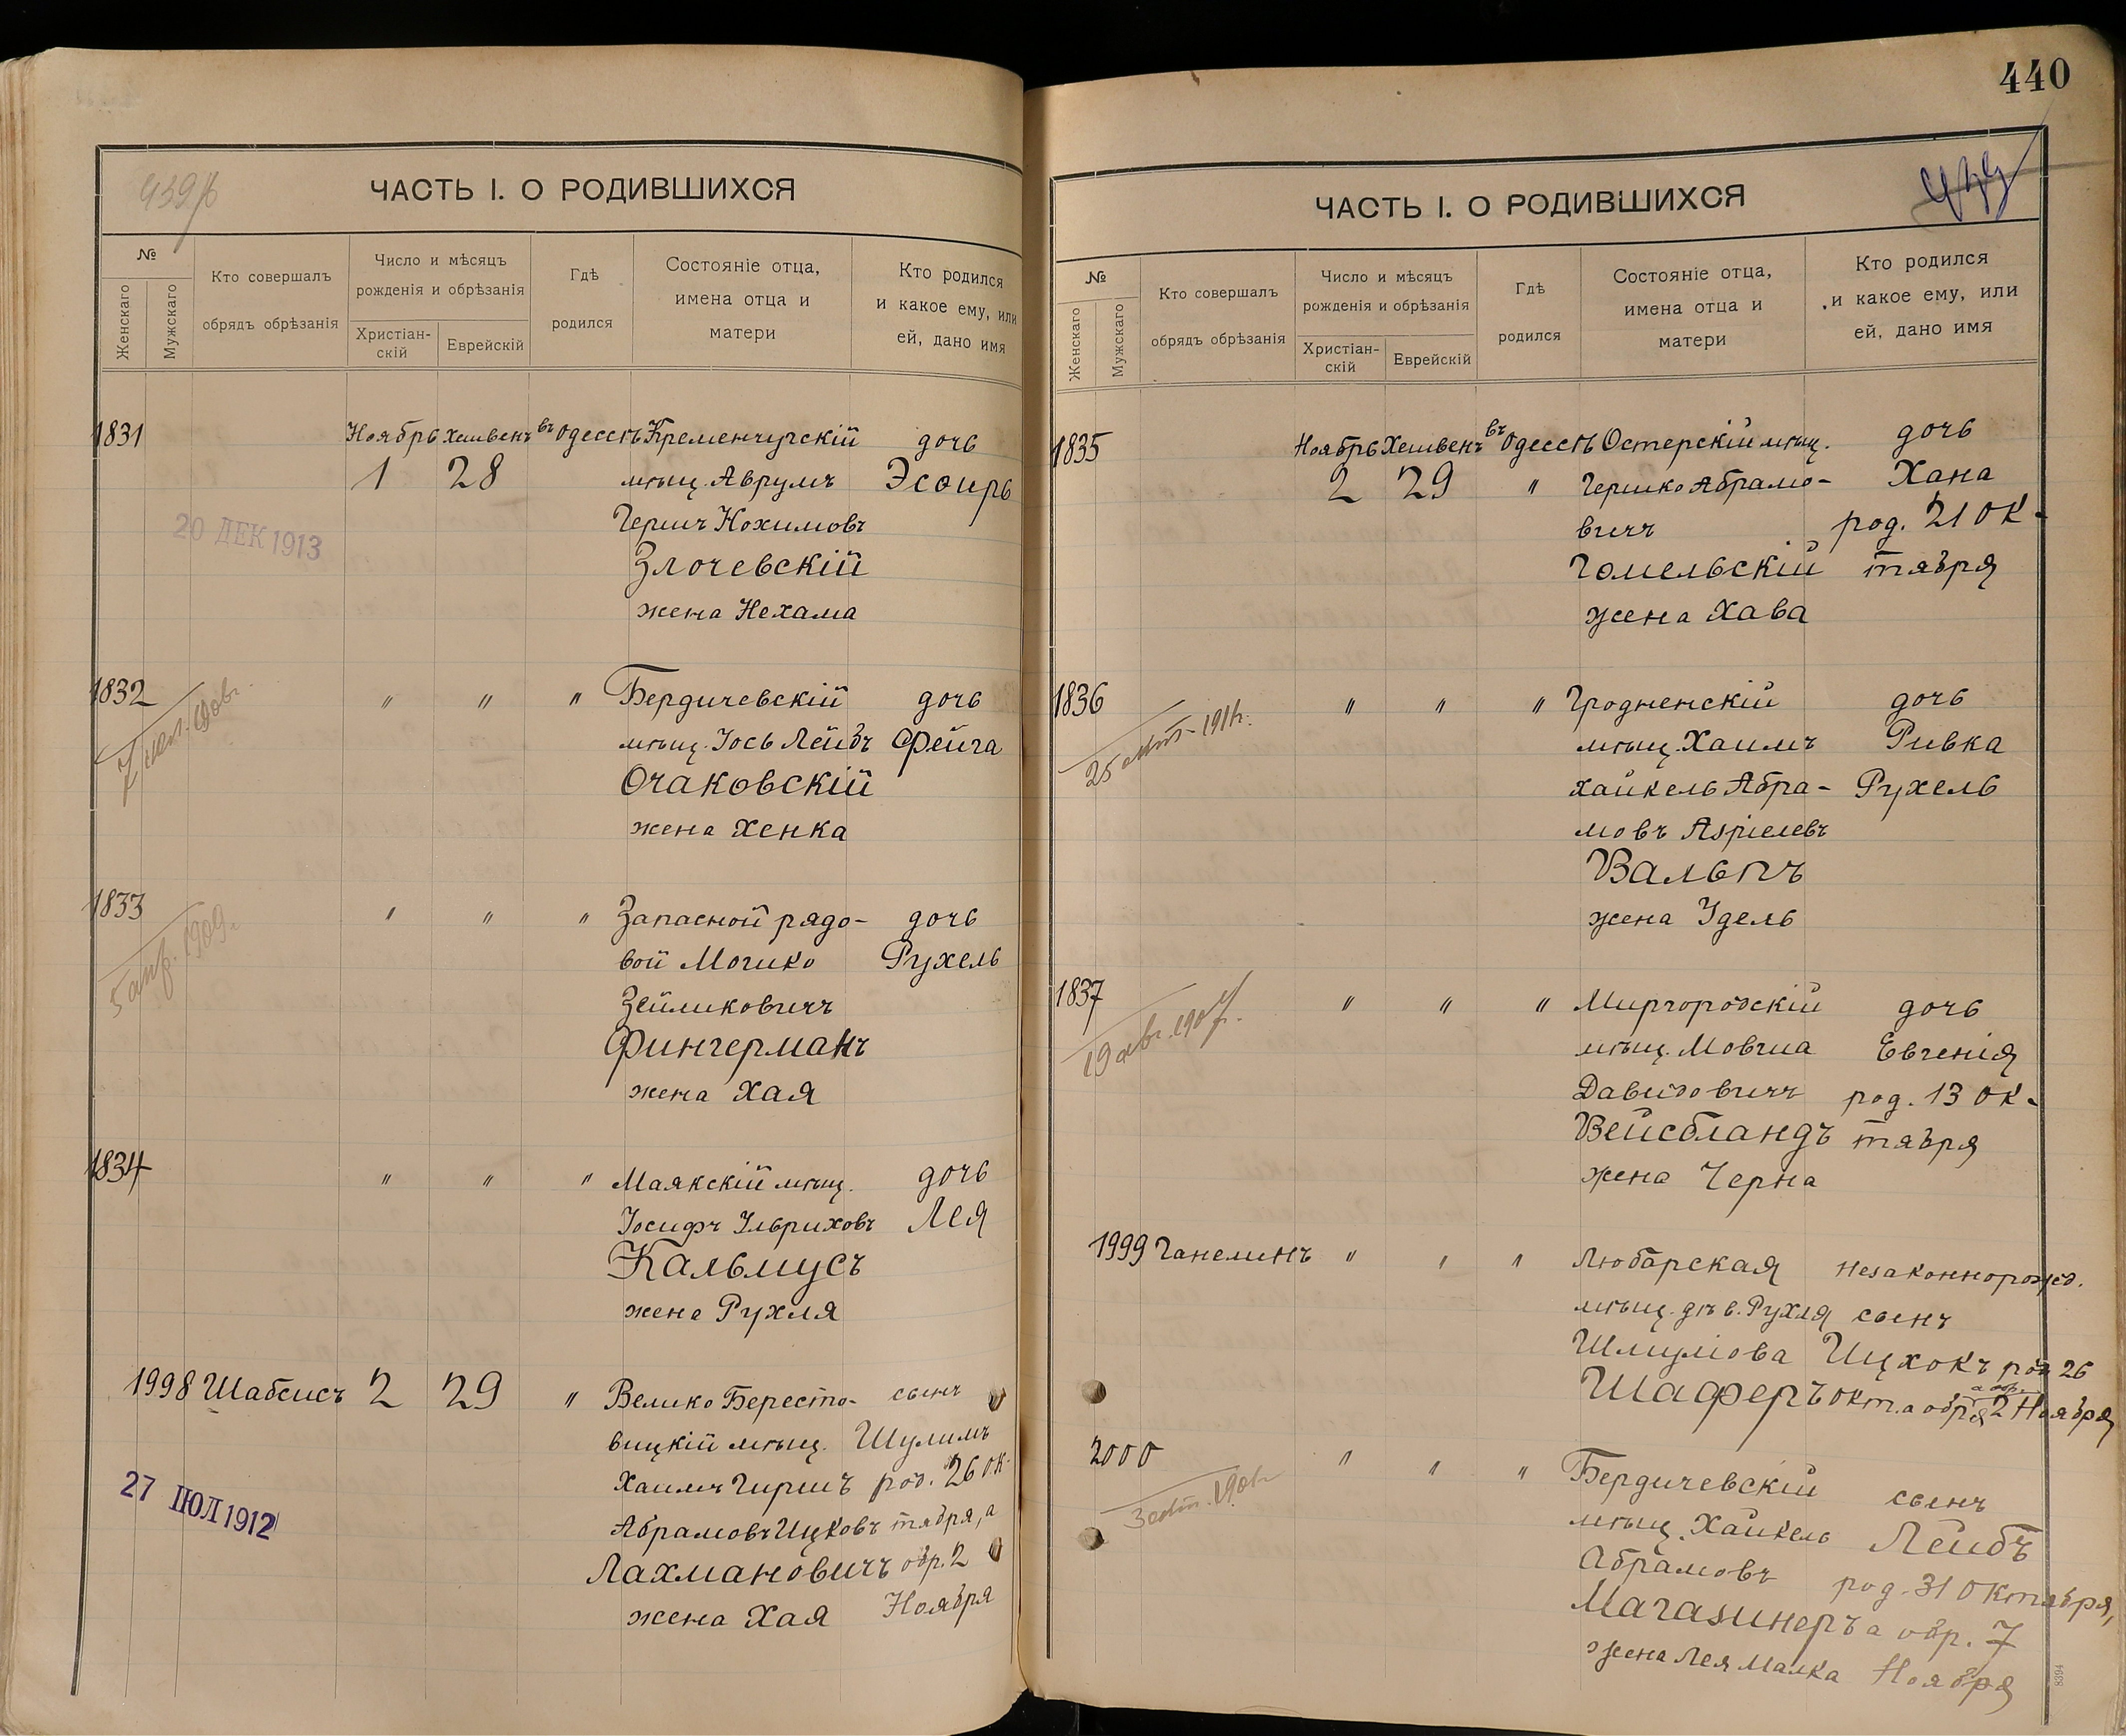 ЧАСТЬ I. О РОДИВШИХСЯ
№
Женскаго
Мужскаго
Кто совершалъ
обрядъ обрѣзанія
Число и мѣсяцъ
рожденія и обрѣзанія
Христіан-
скій
Еврейскій
Гдѣ
родился
Состояніе отца,
имена отца и
матери
Кто родился
и какое ему, или
ей, дано имя
1831 Ноябрь Хешвенъ въ Одессѣ Кременчугскій дочь
1 28 мѣщ. Аврумъ Эсѳирь
20 ДЕК 1913
Гершъ Нохимовъ
Злочевскій
жена Нехама
1832 " " " Бердичевскій дочь
мѣщ. Іось Лейбъ Фейга
Очаковскій
жена Хенка
1833 " " " Запасной рядо- дочь
вой Мошко Рухель
5 апр. 1909 г.
Зейликовичъ
Фингерманъ
жена Хая
1834 " " " Маякскій мѣщ. дочь
Іосифъ Ульриховъ Лея
Кальмусъ
жена Рухля
1998 Шабсисъ 2 29 " Велико Бересто- сынъ
вицкій мѣщ. Шулимъ
Хаимъ Гиршъ род. 26 Ок-
27 ІЮЛ 1912
Абрамовъ Ицковъ тября, а
Лахмановичъ обр. 2
жена Хая Ноября
440
ЧАСТЬ I. О РОДИВШИХСЯ
№
Женскаго
Мужскаго
Кто совершалъ
обрядъ обрѣзанія
Число и мѣсяцъ
рожденія и обрѣзанія
Христіан-
скій
Еврейскій
Гдѣ
родился
Состояніе отца,
имена отца и
матери
Кто родился
и какое ему, или
ей, дано имя
1835 Ноябрь Хешвенъ въ Одессѣ Остерскій мѣщ. дочь
2 29 " Гершко Абрамо- Хана
вичъ род. 21 Ок-
Гомельскій тября
жена Хава
1836 " " " Гродненскій дочь
мѣщ. Хаимъ Ривка
Хайкель Абра- Рухель
мовъ Азріелевъ
Вальпъ
жена Удель
1837 " " " Миргородскій дочь
19 авг. 1907 г.
мѣщ. Мовша Евгенія
Давидовичъ род. 13 Ок-
Вейсбландъ тября
жена Черна
1999 Ганелинъ " " " Любарская незаконнорожд.
мѣщ. дѣв. Рухля сынъ
Шлиумова Ицхокъ род 26
Шаферъ окт. а обр. 2 Ноября
2000 " " " Бердичевскій сынъ
мѣщ. Хайкель Лейбъ
Абрамовъ род. 31 Октября,
Магазинеръ а обр. 7
жена Лея Малка Ноября
8394